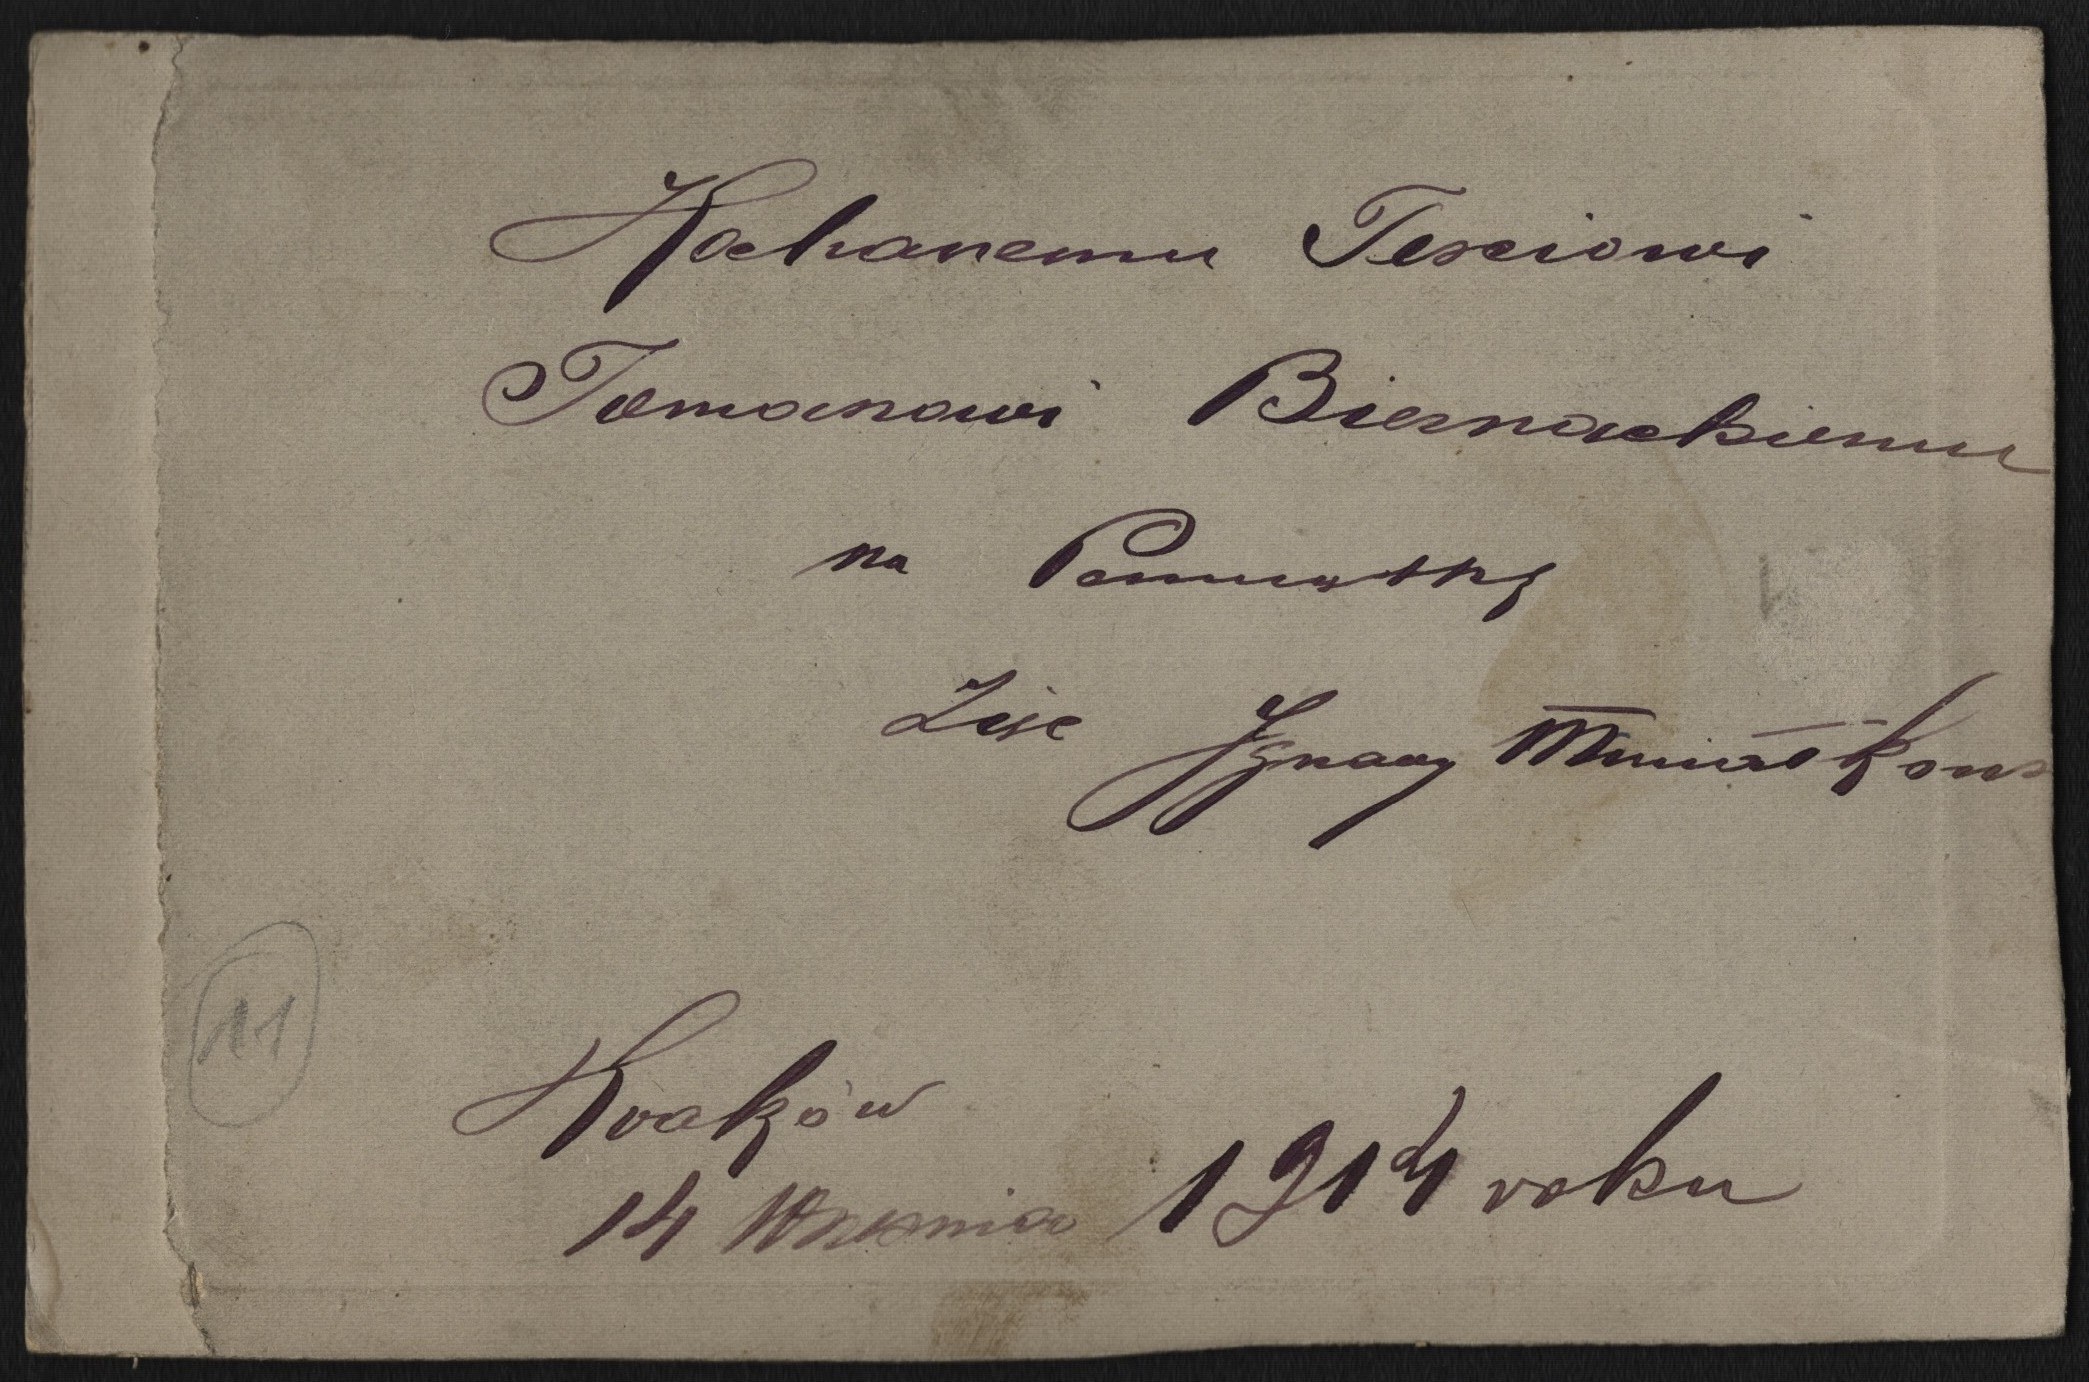 Kochanemu Tesciowi
Tomanowi Biernackiemu
na Pamiątkę
Zięc Ignacy
Kraków
14 Wrzesnia 1914 roku
11